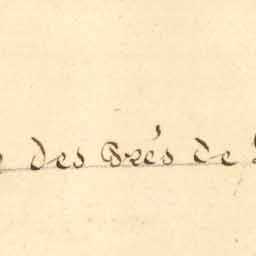 des Prés de